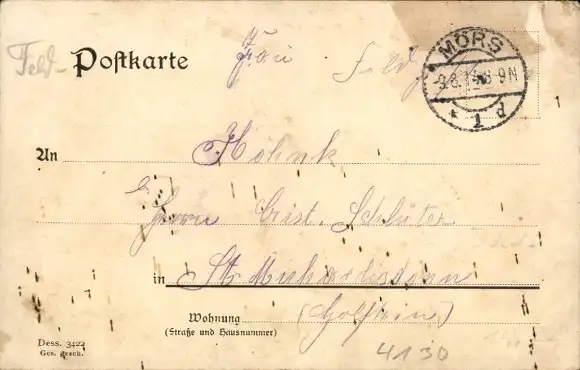 Feld-
Postkarte
Frau
Feld
MÖRS
8-9N
* 1 d
An
Höhnk
Herrn Crist. Schlüter
in St. Michaelisdonn
Wohnung (Holstein)
(Straße und Hausnummer)
Dess. 3422
Ges. gesch.
4130